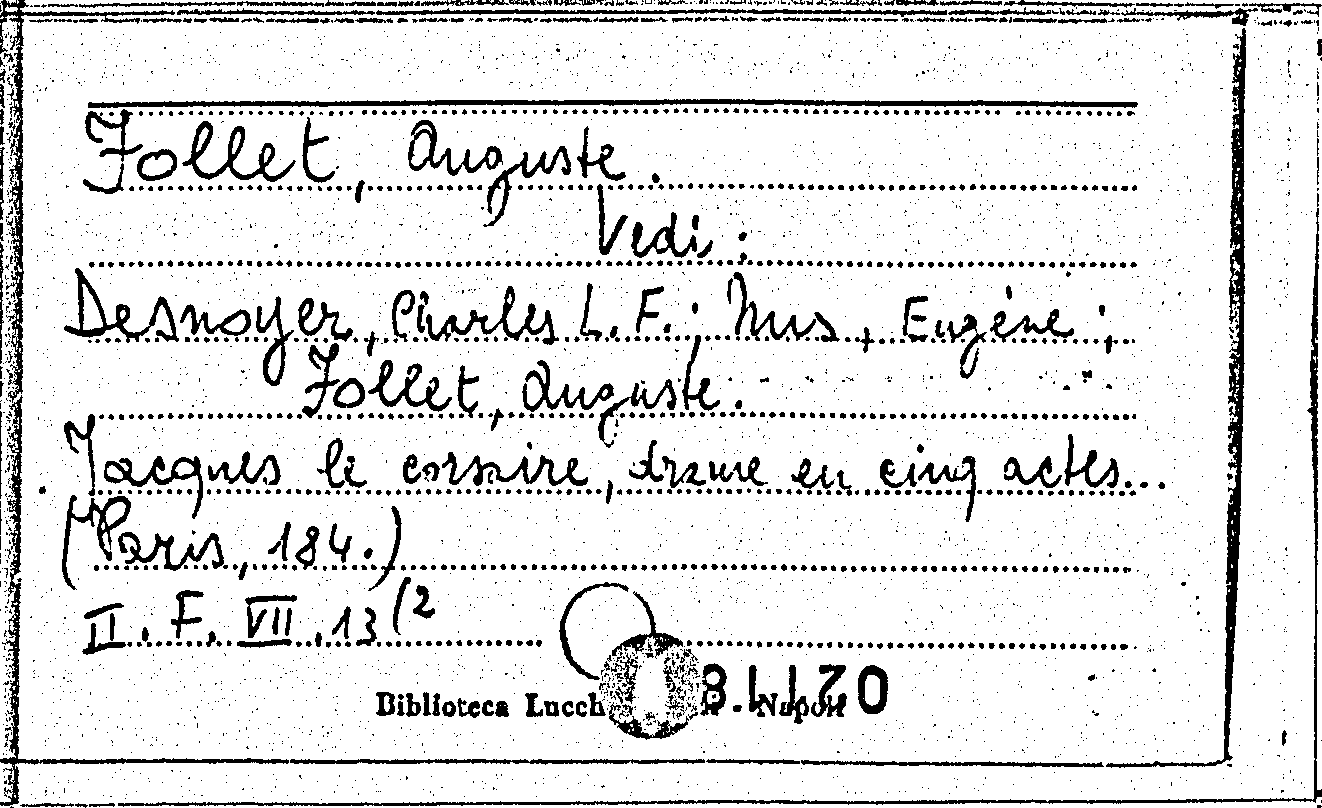 Follet, Auguste.
Vedi:
Desnoyer, Charles L. F.; Nus, Eugéne;
Follet, Auguste.
Jacques le corsaire, drame en cinq actes...
(Paris, 184.)
II. F. VII. 13(2
Biblioteca Lucch Napoli